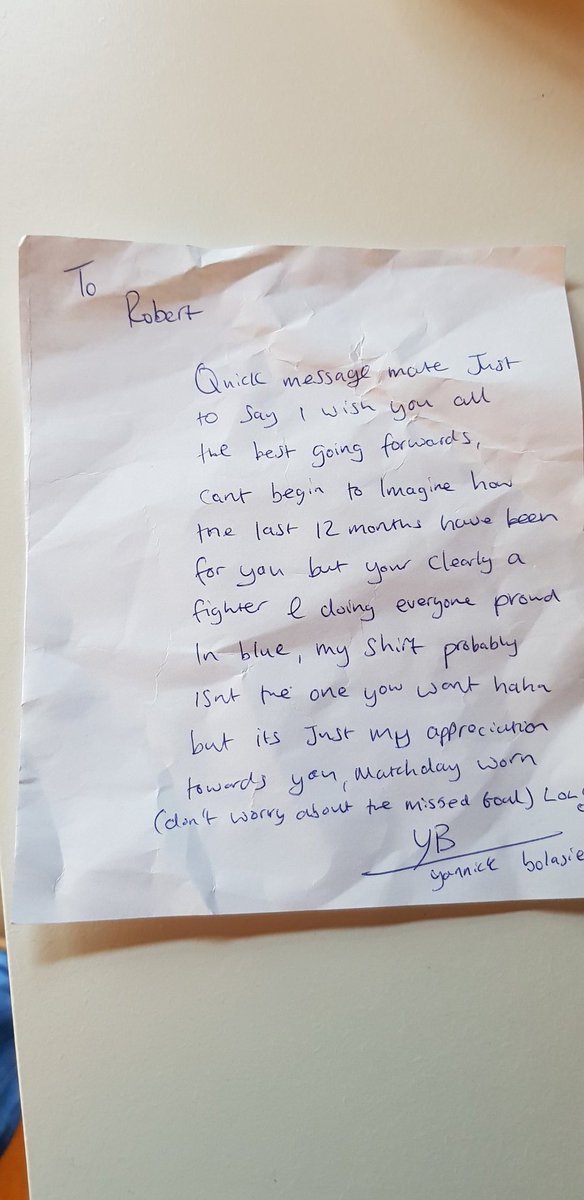 To
Robert
Quick message mate Just
to say I wish you all
the best going forwards,
cant begin to Imagine how
the last 12 months have been
for you but your clearly a
fighter & doing everyone proud
In blue, my shirt probably
isnt the one you want haha
but its Just my appreciation
towards you, Matchday worn
(don't worry about the missed Goal) LOL
YB
yannick bolasie